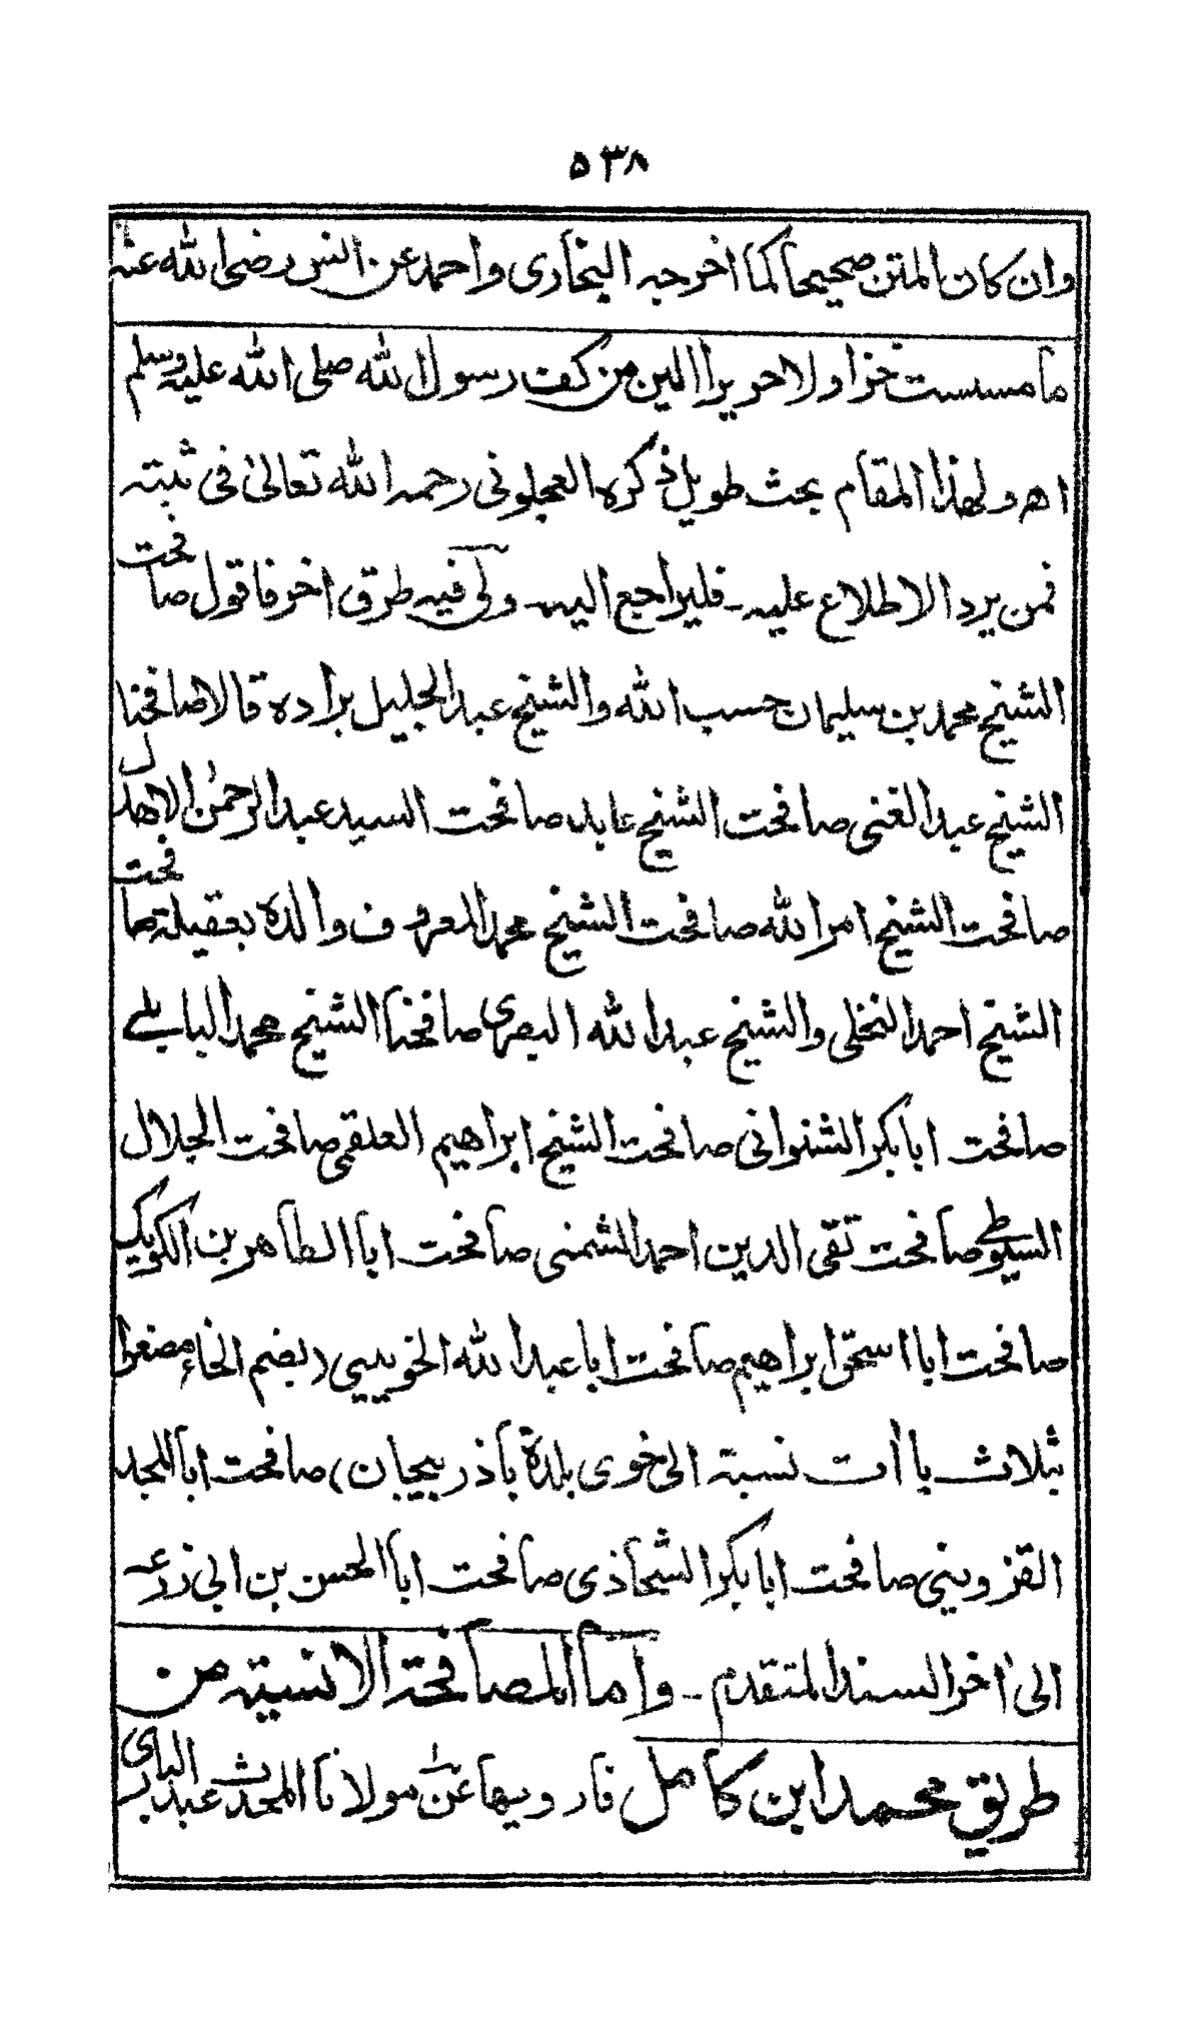 ۵۳۸
وان كان المتن صحيحا كما اخرجه البخارى واحمد عن انس رضى الله عنه
ما مسست خزا ولا حريرا الين من كف رسول الله صلى الله عليه وسلم
اه ولهذا المقام بحث طويل ذكره العجلونى رحمه الله تعالىٰ فى ثبته
فمن يرد الاطلاع عليه ـ فليراجع اليه ـ ولى فيه طرق اخر فاقول صافحت
الشيخ محمد بن سليمان حسب الله والشيخ عبد الجليل براده قالا صافحنا
الشيخ عبد الغنى صافحت الشيخ عابد صافحت السيد عبد الرحمٰن الاهدل
صافحت الشيخ امر الله صافحت الشيخ محمد المعروف والده بعقيلة صافحت
الشيخ احمد النخلى والشيخ عبد الله البصرى صافحنا الشيخ محمد البابلے
صافحت ابا بكر الشنوانى صافحت الشيخ ابراهيم العلقمى صافحت الجلال
السيوطے صافحت تقى الدين احمد الشمنى صافحت ابا الطاهر بن الكويك
صافحت ابا اسحٰق ابراهيم صافحت ابا عبد الله الخوييى (بضم الخاء مصغرا
بثلاث يا أت نسبة الى خوى بلدة بآذربيجان) صافحت ابا المجد
القزوينى صافحت ابا بكر الشحاذى صافحت ابا الحسن بن ابى زرعه
الىٰ اخر السند المتقدم ـ واما المصافحة الانسية من
طريق محمد ابن كامل فارويها عن مولانا المحدث عبد البارى